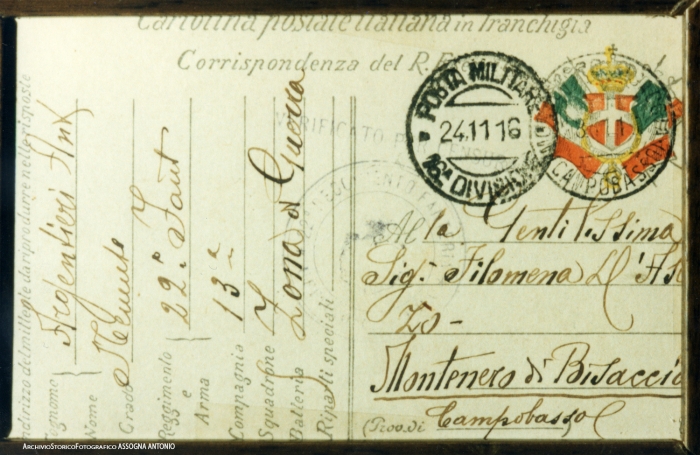 Cartolina postale italiana in franchigia
Corrispondenza del R.
POSTA MILITARE
24.11.16
DIVISIONE
CAMPOBASSO
VERIFICATO PER CENSURA
Indirizzo del mittente da riprodurre nelle risposte
Cognome Argentieri Ant
Nome
Grado Tenente
Reggimento 22° Fant
e
Arma
Compagnia 13a
Squadrone
Batteria Zona di Guerra
Riparti speciali
Alla Gentilissima
Sig. Filomena D'As
Zo-
Montenero di Bisaccia
(Prov. di Campobasso
ArchivioStoricoFotografico ASSOGNA ANTONIO